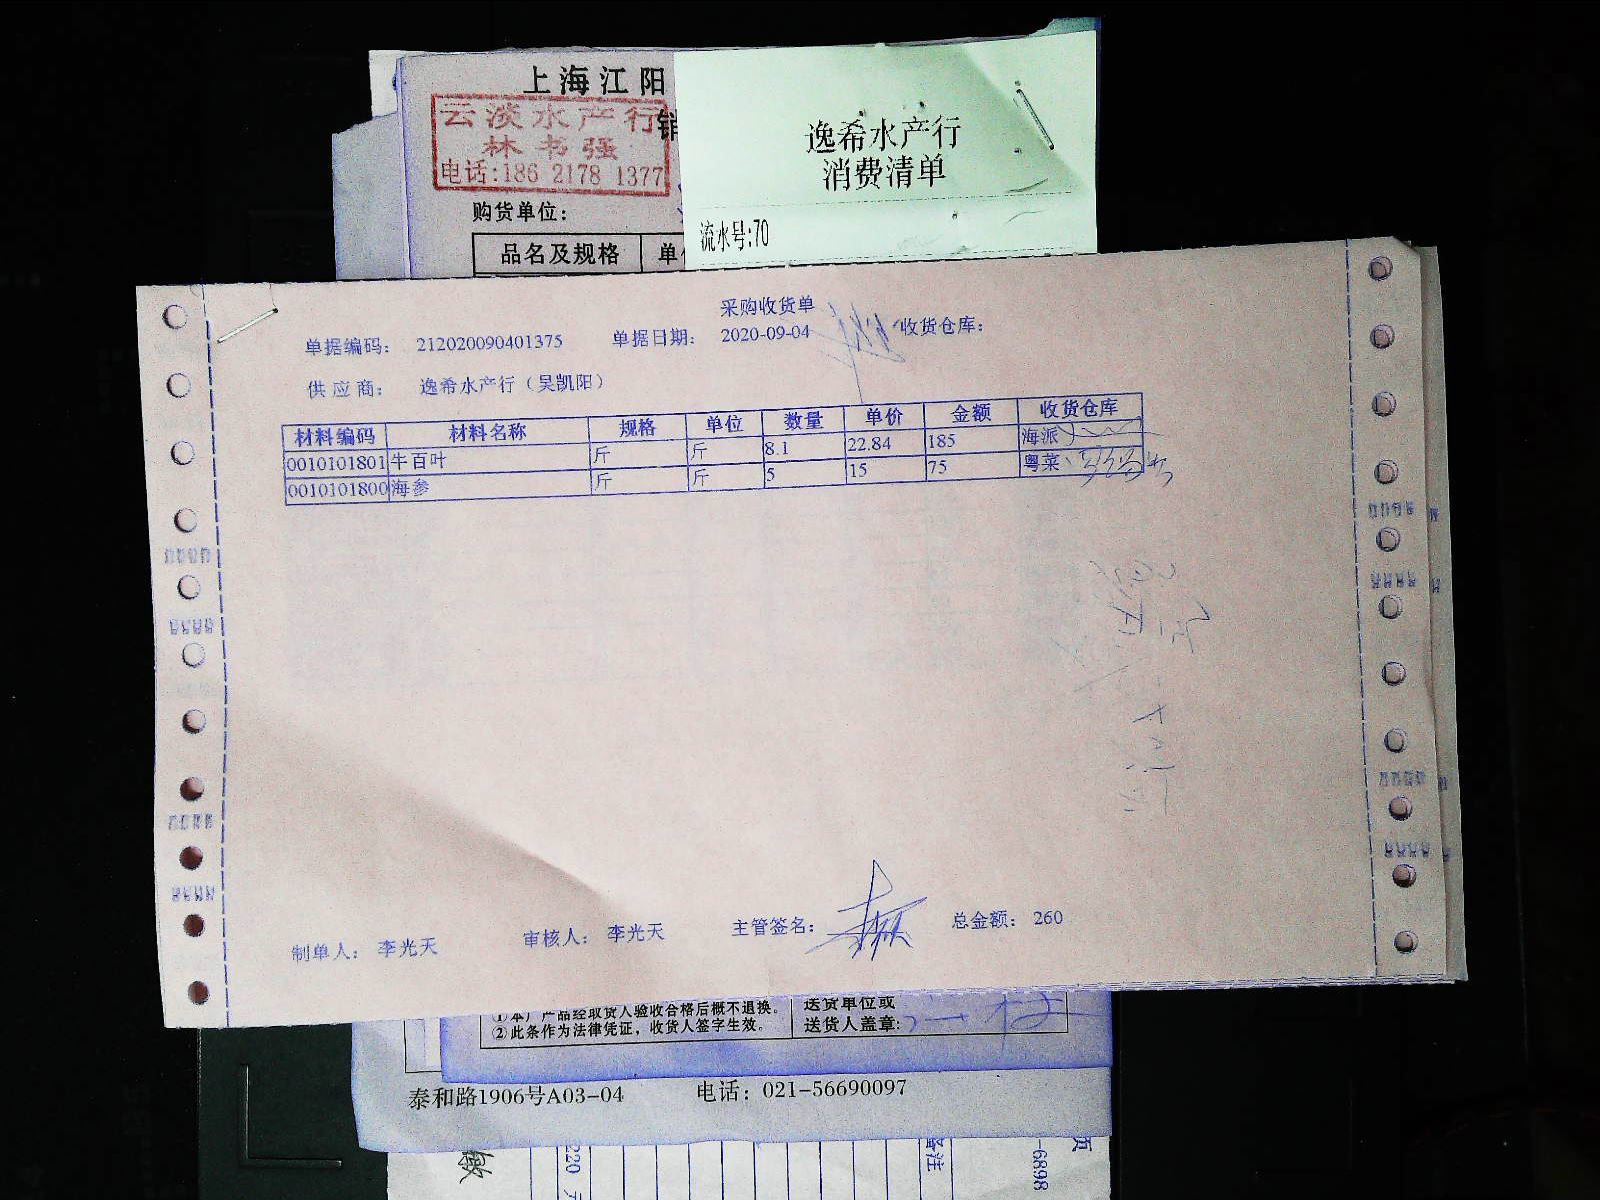 上海江阳
云淡水产行
销
林书强
电话:186 2178 1377
购货单位:
品名及规格 单
逸希水产行
消费清单
流水号:70
采购收货单
单据编码: 212020090401375 单据日期: 2020-09-04 收货仓库:
供应商: 逸希水产行（吴凯阳）
材料编码 材料名称 规格 单位 数量 单价 金额 收货仓库
0010101801 牛百叶 斤 斤 8.1 22.84 185 海派
0010101800 海参 斤 斤 5 15 75 粤菜
制单人: 李光天 审核人: 李光天 主管签名: 总金额: 260
①本厂产品经取货人验收合格后概不退换。
②此条作为法律凭证，收货人签字生效。
送货单位或
送货人盖章:
泰和路1906号A03-04 电话: 021-56690097
220 元
备注
-6898
页